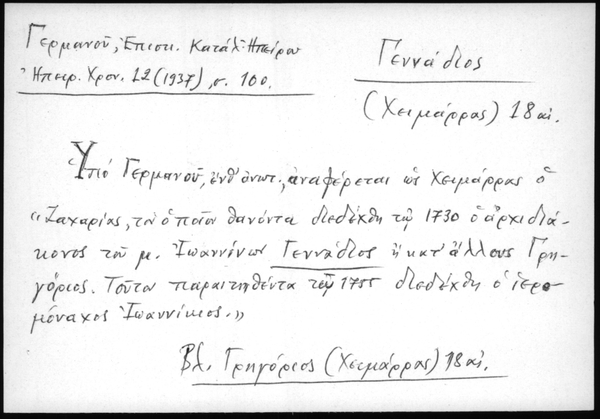 Γερμανοῦ, Ἐπισκ. Κατάλ. Ἠπείρου
Ἠπειρ. Χρον. 12 (1937), σ. 100.
Γεννάδιος
(Χειμάρρας) 18 αἰ.
Ὑπό Γερμανοῦ, ἐνθ' ἀνωτ., ἀναφέρεται ὡς Χειμάρρας ὁ
"Ζαχαρίας, τόν ὁποῖον θανόντα διεδέχθη τῷ 1730 ὁ ἀρχιδιά-
κονος τοῦ μ. Ἰωαννίνων Γεννάδιος ἤ κατ' ἄλλους Γρη-
γόριος. Τοῦτον παραιτηθέντα τῷ 1755 διεδέχθη ὁ ἱερο-
μόναχος Ἰωαννίκιος."
Βλ. Γρηγόριος (Χειμάρρας) 18 αἰ.